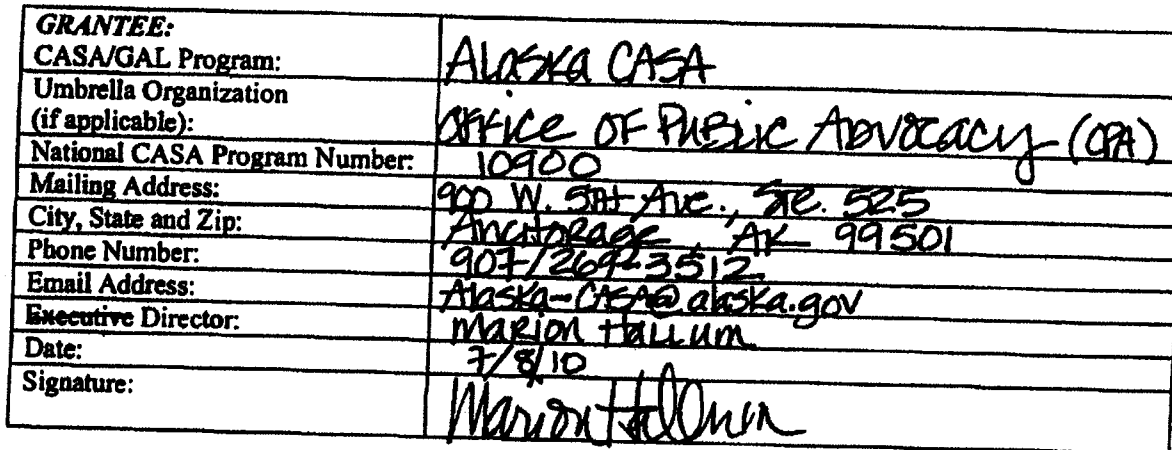 GRANTEE:
CASA/GAL Program: Alaska CASA
Umbrella Organization
(if applicable): Office of Public Advocacy (OPA)
National CASA Program Number: 10900
Mailing Address: 900 W. 5th Ave., Ste. 525
City, State and Zip: Anchorage, AK 99501
Phone Number: 907/269-3512
Email Address: Alaska-CASA@alaska.gov
Executive Director: Marion Hallum
Date: 7/8/10
Signature: Marion Hallum